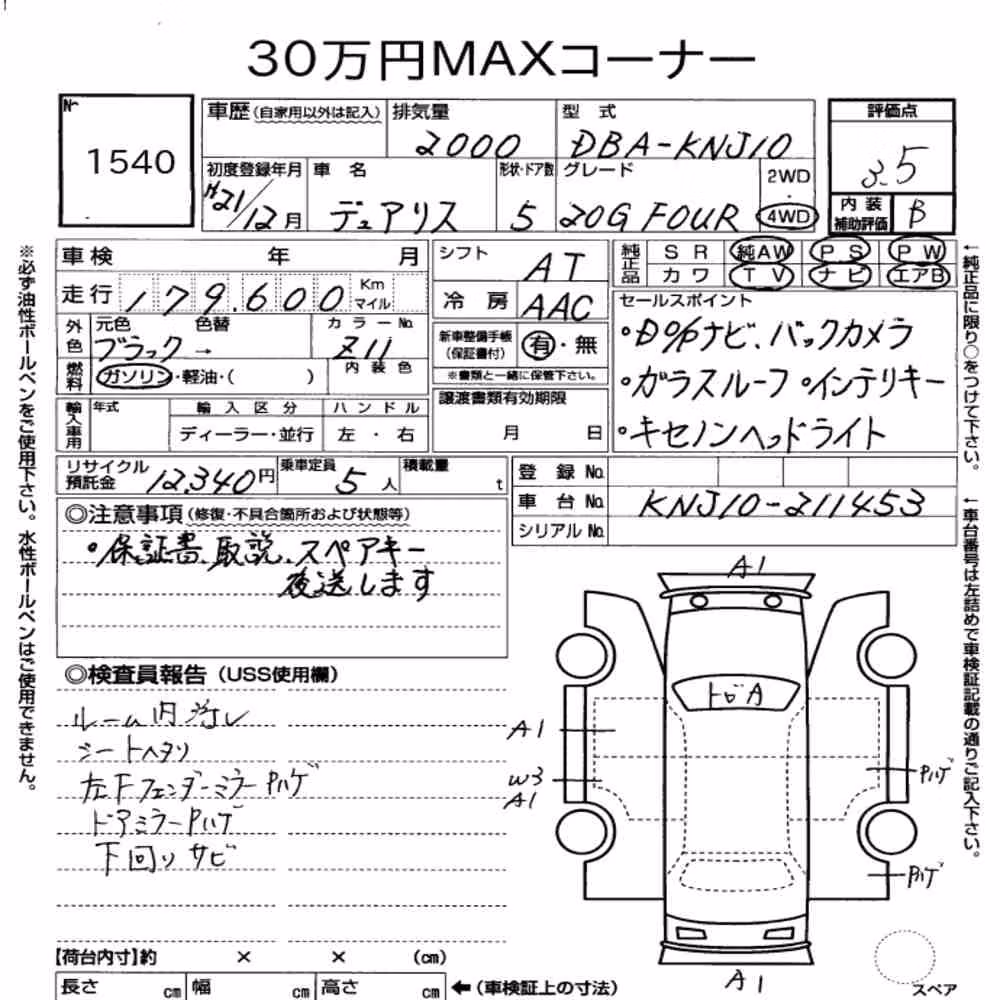 30万円MAXコーナー
№ 1540
車歴 (自家用以外は記入) 排気量 2000 型 式 DBA-KNJ10
評価点 3.5
初度登録年月 H21/12月 車 名 デュアリス 形状・ドア数 5 グレード 20G FOUR 2WD ・ 4WD
内 装 補助評価 B
車検 年 月
走行 179,600 Km マイル
シフト AT
冷 房 AAC
純正品 S R 純AW P S P W
カ ワ T V ナ ビ エアB
外色 元色 ブラック → 色替 カラーNo. Z11
燃料 ガソリン・軽油・( ) 内 装 色
新車整備手帳 (保証書付) 有・無
※書類と一緒に保管下さい。
セールスポイント
・D○Pナビ、バックカメラ
・ガラスルーフ ・インテリキー
・キセノンヘッドライト
輸入車用 年式 輸 入 区 分 ハ ン ド ル
ディーラー・並行 左 ・ 右
譲渡書類有効期限
月 日
リサイクル預託金 12,340円 乗車定員 5人 積載量 t
登 録 No.
車 台 No. KNJ10-211453
シリアル No.
◎注意事項 (修復・不具合箇所および状態等)
・保証書、取説、スペアキー
後送します
◎検査員報告 (USS使用欄)
ルーム内汚レ
シートヘタリ
左Fフェンダーミラー Pハゲ
ドアミラーPハゲ
下回りサビ
A1
トビA
A1
W3
A1
Pハゲ
Pハゲ
A1
スペア
【荷台内寸】約 × × (cm)
長さ cm 幅 cm 高さ cm ←(車検証上の寸法)
※必ず油性ボールペンをご使用下さい。水性ボールペンはご使用できません。
←純正品に限り○をつけて下さい。
←車台番号は左詰めで車検証記載の通りご記入下さい。